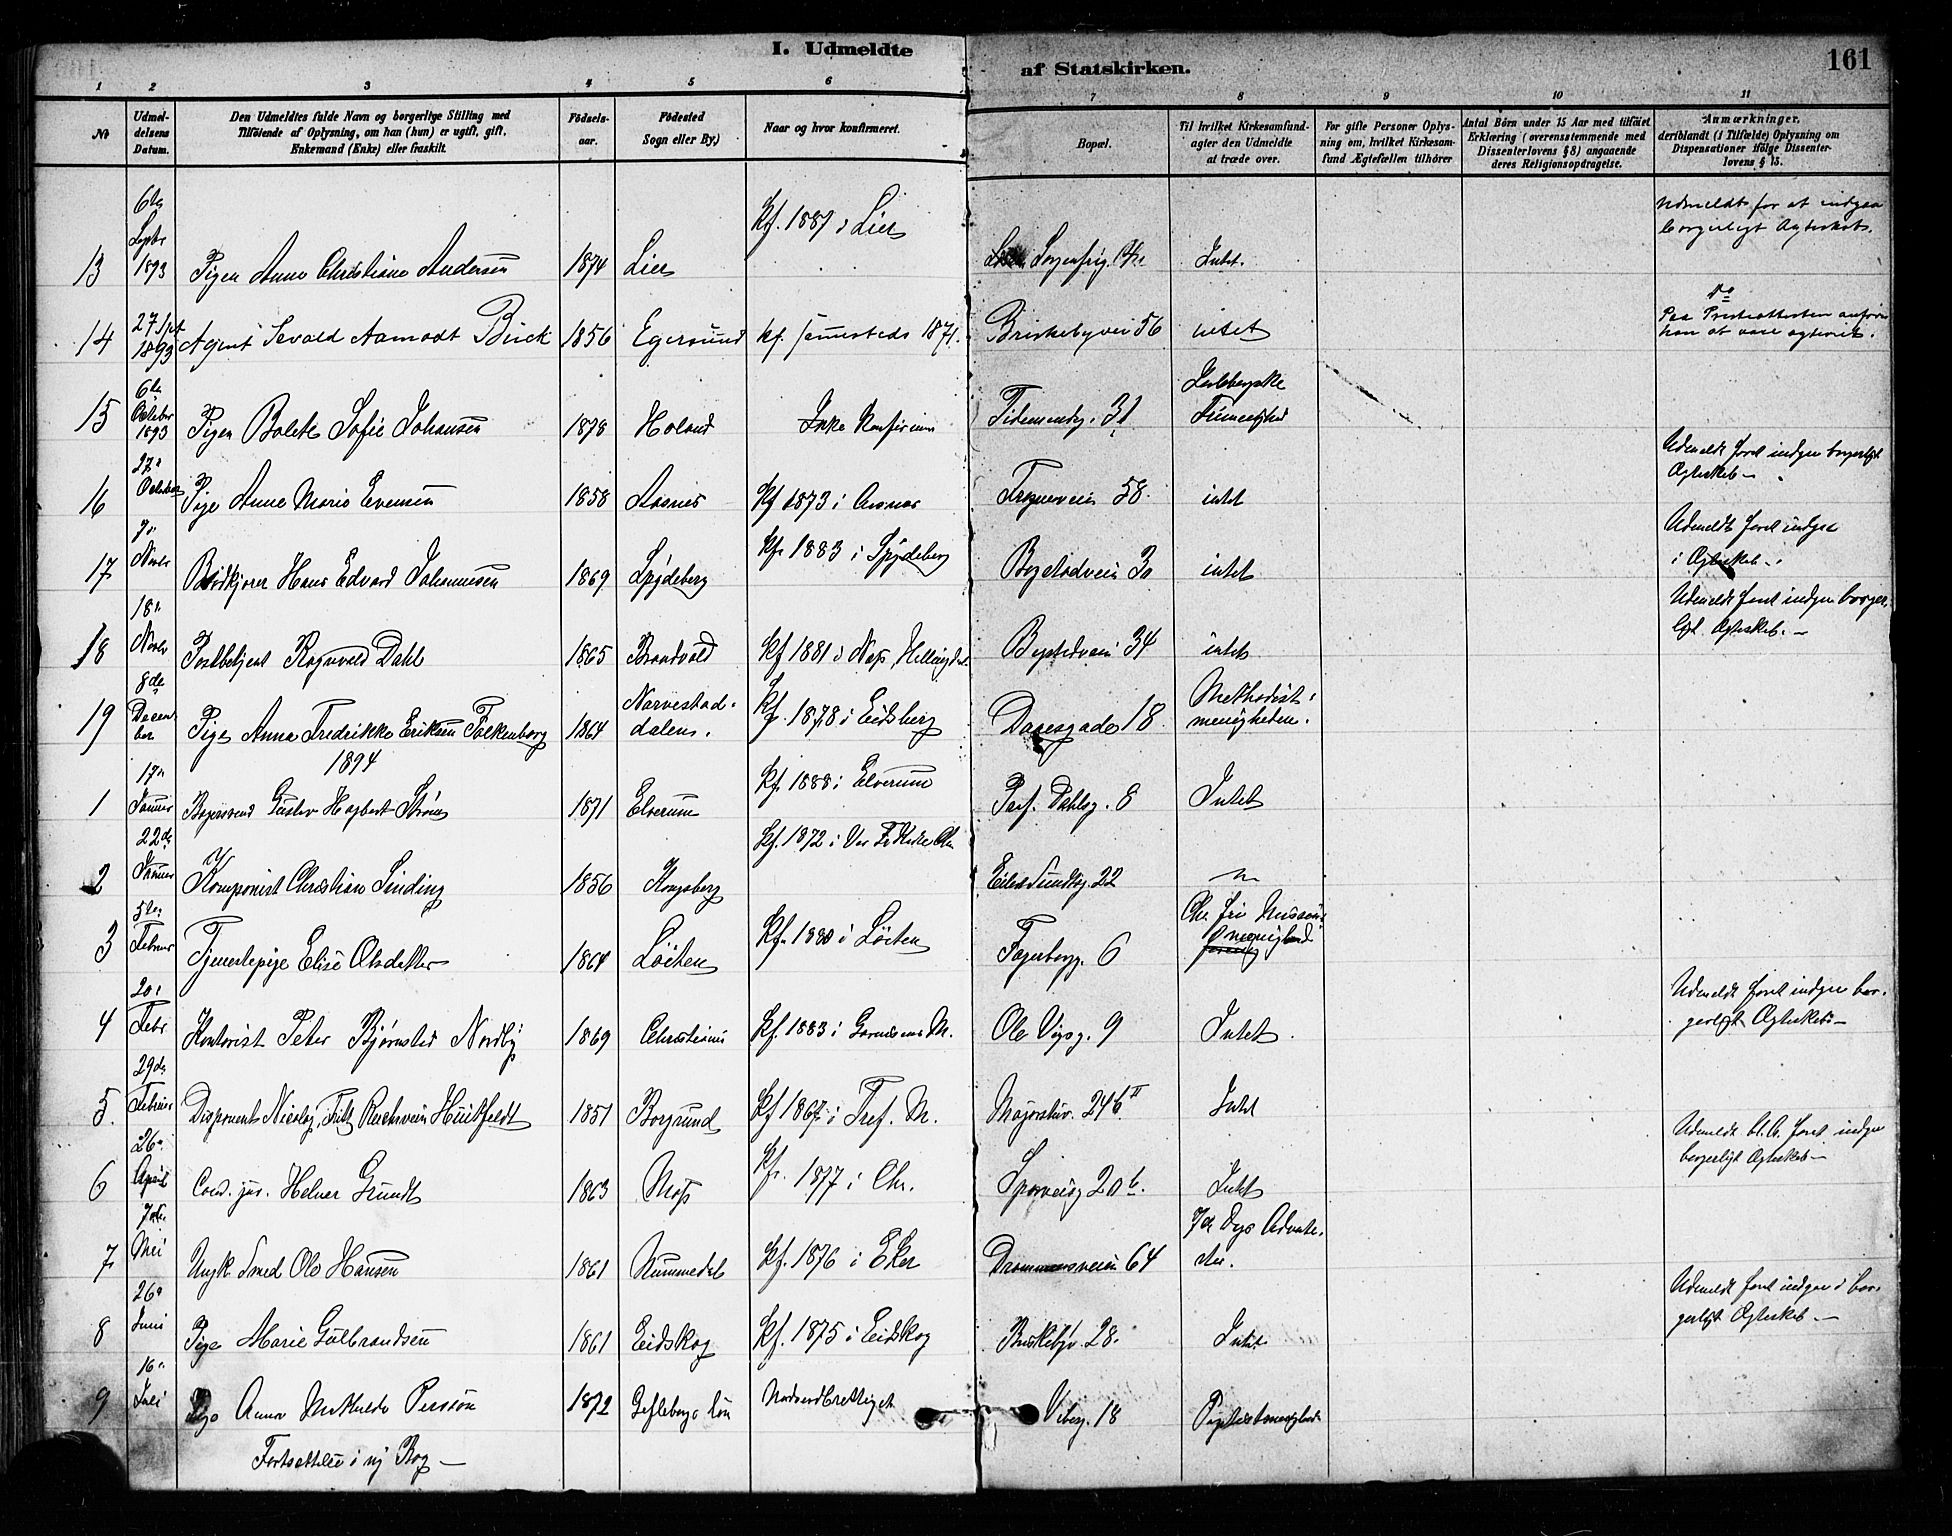 I. Udmeldte
af Statskirken.
161
1 2 3 4 5 6 7 8 9 10 11
No
Udmel-
delsens
Datum.
Den Udmeldtes fulde Navn og borgerlige Stilling med
Tilföiende af Oplysning, om han (hun) er ugift, gift,
Enkemand (Enke) eller fraskilt.
Födsels-
aar.
Födested
Sogn eller By.)
Naar og hvor konfirmeret.
Bopæl.
Til hvilket Kirkesamfund-
agter den Udmeldte
at træde over.
For gifte Personer Oplys-
ning om, hvilket Kirkesam-
fund Ægtefællen tilhörer
Antal Börn under 15 Aar med tilföiet
Erklæring (overensstemmende med
Dissenterlovens § 8) angaaende
deres Religionsopdragelse.
Anmærkninger,
deriblandt (i Tilfælde) Oplysning om
Dispensationer ifölge Dissenter-
lovens § 15.
13 6te Septbr 1893 Pigen Anne Christine Andersen 1874 Lier Kf. 1887 i Lier Sorgenfrig. Intet. Udmeldt for at indgaa
borgerligt Ægteskab.
14 27 Spt 1893 Agent Sevald Aamodt Bück 1856 Egersund kf. sammesteds 1871. Briskebyvei 56 intet Do
Paa Presteattesten anføres
han at være ugivet.
15 6te October 1893 Pigen Bolette Sofie Johansen 1878 Holand Ikke Konfirm Tidemandsg. 31
16 27de October Pige Anne Marie Evensen 1858 Aasnes Kf 1873 i Aasnes Frognerveien 58. intet Udmeldt forat indgaa borgerligt
Ægteskab
17 7de Novbr Hans Edvard Johannesen 1869 Spydeberg Kf. 1883 i Spydeberg Bogstadveien 30 intet Udmeldt forat indgaa
i Ægteskab
18 18de Novbr Postbetjent Ragnvald Dahl 1865 Brandvold Kf 1881 i Næs, Hallingdal Bogstadveien 34 intet Udmeldt forat indgaa borger
ligt Ægteskab. —
19 8de Decem
ber Pige Anna Fredrikke Eriksen Falkenborg 1864 Narvestad-
dalen. Kf. 1878 i Eidsberg Daasgade 18 Methodist
menigheden.
1894
1 17de Januar Bagersvend Gustav Hagbart Strøm 1871 Elverum Kf. 1888 i Elverum Prof. Dahlsg. 8 Intet
2 22de Januar Komponist Christian Sinding 1856 Kongsberg Kf. 1872 i Vor Fr Kirke Chr Eilert Sundtsg. 22
3 5te Februar Tjenestepige Elise Olsdatter 1864 Löiten Kf. 1880 i Löiten Fagerborgg. 6 Chr. frie Missions
menighed
4 20de Febr Kontorist Peter Bjørnstad Nordby 1869 Christiania Kf. 1883 i Garnisons M. Ole Vigsg. 9 Intet Udmeldt forat indgaa bor-
gerligt Ægteskab —
5. Februar Disponent Nicolay Huitfeldt 1851 Borgund Kf 1867 i Tref. M. Majorstuv. 24b II Intet
6 26de April Cand. jur. Helmer Grundt 1863 Moss Kf. 1877 i Chr. Sporveisg 20 b. Intet Udmeldt bl. A. forat indgaa
borgerligt Ægteskab —
7 7de Mai Ungk. Smed Ole Hansen 1861 Nummedal Kf. 1876 i Eker Drammensveien 64 7de Dags Advente-
ster.
8 26de Juni Pige Marie Gulbrandsen 1861 Eidskog Kf. 1875 i Eidskog Briskebyv. 28. Intet Udmeldt forat indgaa i bor-
gerligt Ægteskab. —
9 16de Juli Pige Anna Mathilde Persson 1872 Gefleborgs län Nadverdberettiget Vibesg. 18
Fortsættelse i ny Bog —